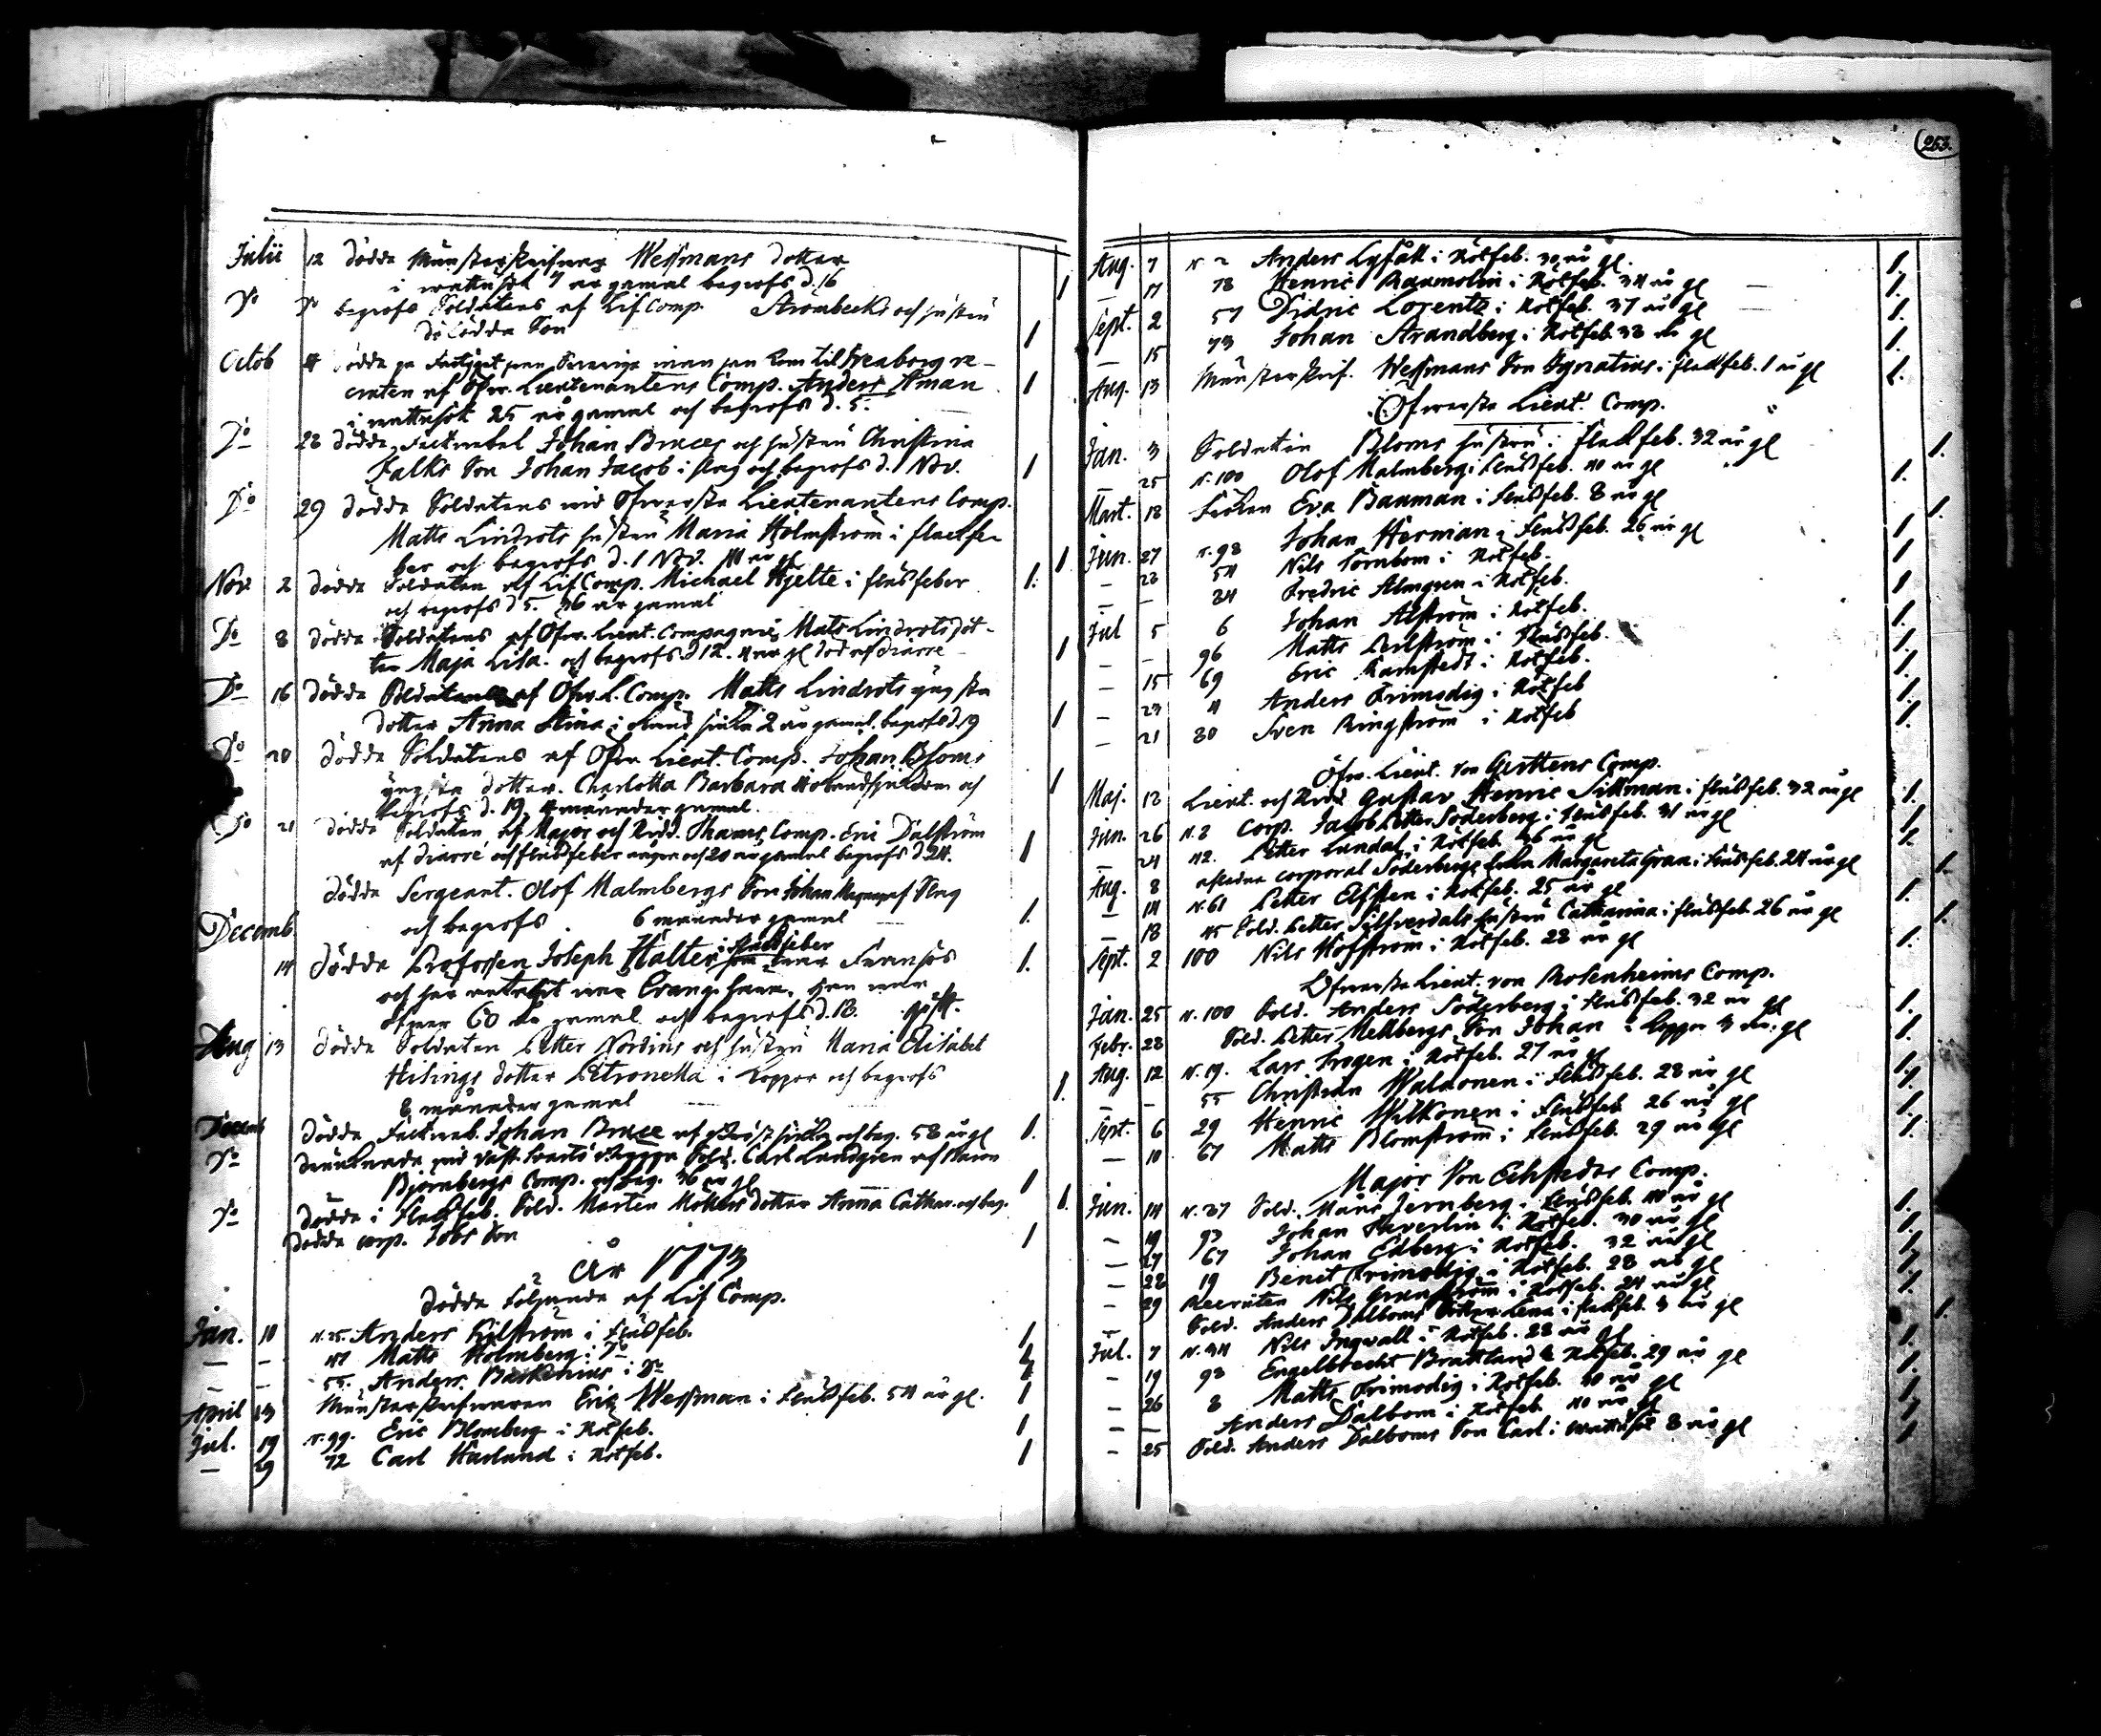 Julii 12 dödde Münsterskrifvare Wessmans dotter
i wattusot 7 år gamal begrofs d. 16
Do Do begrofs Soldatens af Lif Comp. Strömbecks och hustru
dödödda Son
Octob 4 dödde på Fartyget från Sverige innan han kom til Sveaborg re-
cruten af Öfw. Lieutenantens Comp. Anders Åman
i wattusot 25 år gamal och begrofs d. 5.
Do 28 dödde Fältwebel Johan Bruces och hustru Christina
Falks Son Johan Jacob i slag och begrofs d. 1 Nov.
Do 29 dödde Soldatens wid Öfwersta Lieutenantens Comp.
Matts Lindrots hustru Maria Holmström i fläckfe-
ber och begrofs d. 1 Nov. år gl
Nov. 2 dödde Soldaten af Lif Comp. Michael Hjelte i fläckfeber
och begrofs d 5. 36 år gamal
Do 8 dödde Soldatens af Öfw. Lieut. Compagnie Mats Lindrots dot-
ter Maja Lisa. och begrofs d 12. 4 år gl död af diarré
Do 16 dödde Soldatens af Öfw. L. Comp. Matts Lindrots yngsta
dotter Anna Stina i 2 år gamal. begrofs d. 19
Do 20 dödde Soldatens af Öfw. Lieut. Comp. Johan Bloms
yngsta dotter. Charlotta Barbara och
begrofs d. 19, 4 månader gamal.
Do 21 dödde Soldaten af Major och Ridd. Comp. Eric Dalström
af diarré och fläckfeber och 20 år gamal begrofs d. 24.
dödde Sergeant. Olof Malmbergs Son Johan Magnus af Slag
och begrofs . 6 månader gamal
Decemb.
14 dödde Profossen Joseph Halter i fläckfeber som war Fransos
och har war Evang. han war
öfwer 60 år gamal och begrofs d. 18.
Aug 13 dödde Soldaten Petter Nordins och hustru Maria Elisabet
Hilings dotter Petronella i koppor och begrofs
8 månader gamal
Decemb dödde Fältweb. Johan Bruce af bröstsjuka och beg. 58 år gl
Do drunknade wid Sold. Carl Lundgren af Baron
Björnbergs Comp. och beg. 36 år gl
Do dödde i fläckfeb. Sold. Mårten Möllers dotter Anna Cathar. och beg.
dödde corp. Fobs Son
År 1773
dödde följande af Lif Comp.
Jan. 10 N. 25. Anders Kilström i fläckfeb.
— — 47 Matts Holmberg i Do
— — 55. Anders i Do
April 13 Münsterskrifwaren Eric Wessman i fläckfeb. 54 år gl.
Jul. 19 N. 99. Eric Blomberg i Rötfeb.
— 29 72 Carl Harlund i Rötfeb.
253.
Aug. 7 N 2 Anders Lyfält i Rötfeb. 30 år gl.
— 17 78 Henric i Rötfeb. 34 år gl
Sept. 2 57 Didric Lorentz i Rötfeb. 37 år gl
— 15 73 Johan Strandberg i Rötfeb. 38 år gl
Aug. 13 Münsterskrif. Wessmans Son Ignatius i fläckfeb. 1 år gl
Öfwersta Lieut. Comp.
Jan. 3 Soldaten Bloms hustru i fläckfeb. 32 år gl
— 25 N. 100 Olof Malmberg i fläckfeb. 40 år gl
Mart. 18 Eva Bauman i fläckfeb. 8 år gl
Jun. 27 N. 98 Johan Herman i fläckfeb. 26 år gl
— 28 54 Nils Törnbom i Rötfeb.
— — 84 Fredric Almgren i Rötfeb.
Jul 5 6 Johan Alström i Rötfeb.
— — 96 Matts Arlström i fläckfeb.
— 15 69 Eric Ramstedt i Rötfeb.
— 23 4 Anders Frimodig i Rötfeb
— 21 80 Sven Ringström i Rötfeb
Öfw. Lieut. von Gerttens Comp.
Maj. 12 Lieut. och Ridd. Gustav Henric Silfman i fläckfeb. 32 år gl
Jun. 26 N. 2 Corp. Jacob Petter Söderberg i fläckfeb. 31 år gl
— 24 42. Petter Lundal i Rötfeb. 36 år gl
Aug. 8 afledne corporal Söderbergs Enka Margareta Gran i fläckfeb. 24 år gl
— 14 N. 61 Petter Elfsten i Rötfeb. 25 år gl
— 18 45 Sold. Petter Silfverdals hustru Catharina i fläckfeb. 26 år gl
Sept. 2 100 Nils Hofström i Rötfeb. 28 år gl
Öfwersta Lieut. von Rosenheims Comp.
Jan. 25 N. 100 Sold. Anders Söderberg i fläckfeb. 32 år gl
Febr. 28 Sold. Petter Mellbergs Son Johan i koppor 3 år gl
Aug. 12 N. 19. Lars Trogen i Rötfeb. 27 år gl
— — 55 Christian Waldonen i fläckfeb. 28 år gl
Sept. 6 29 Henric Wilkonen i fläckfeb 26 år gl
— 10 67 Matts Blomström i fläckfeb. 29 år gl
Major Von Eckstedts Comp.
Jun. 14 N. 37 Sold. Måns Jernberg i fläckfeb. 40 år gl
— 19 93 Johan Haverlin i Rötfeb. 30 år gl
— 27 67 Johan Edberg i Rötfeb. 32 år gl
— 28 19 Bengt Frimodig i Rötfeb. 28 år gl
— 29 Recruten Nils Granström i Rötfeb. 24 år gl
— Sold. Anders Dalboms dotter Lena i fläckfeb. 3 år gl
Jul. 7 N. 34 Nils Ingwall i Rötfeb. 28 år gl
— 19 93 Engelbrecht Brattland i Rötfeb. 29 år gl
— 26 8 Matts Frimodig i Rötfeb. 40 år gl
— — Anders Dalbom i Rötfeb. 40 år gl
— 25 Sold. Anders Dalboms Son Carl i wattusot 8 år gl